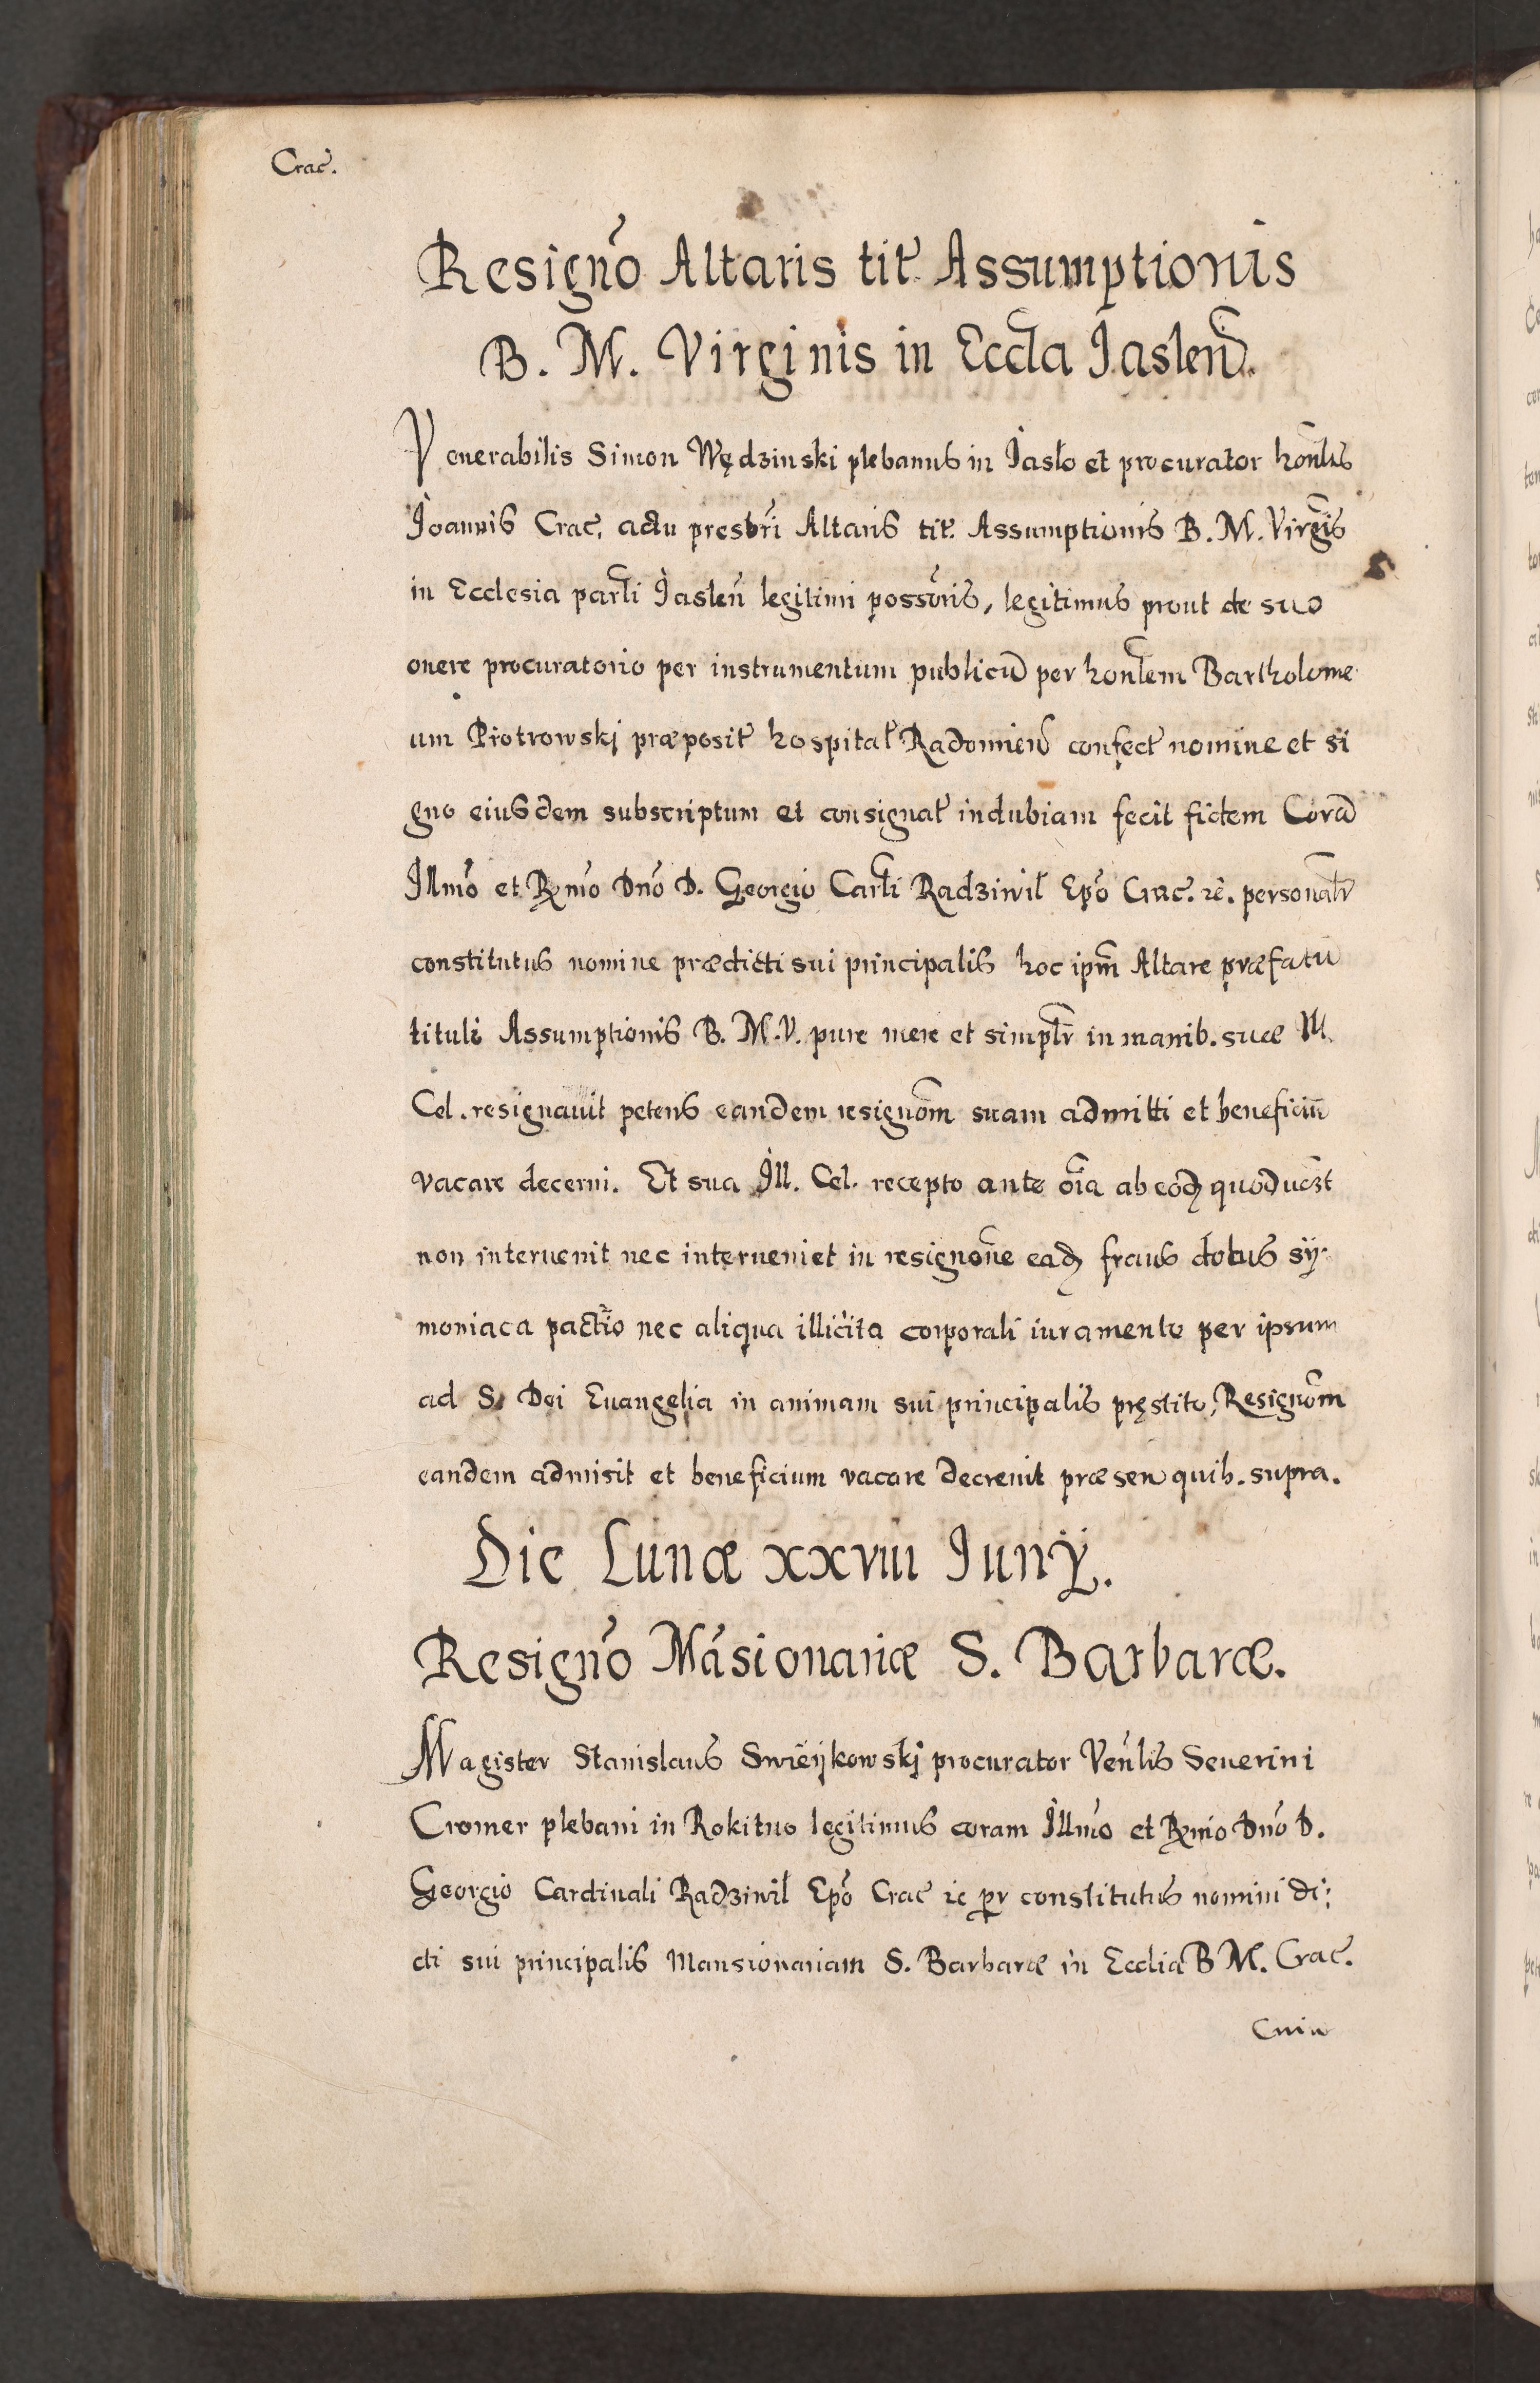 Crac̃.
Resigno᷉ Altaris tit̃ Assumptionis
B. M. Virginis in Eccl̃a Jaslen̄.
Venerabilis Simon Wędzinski plebanus in Jaslo et procurator hon̄lis
Joannis Crac̃. actu presbr̃i Altaris tit̃. Assumptionis B. M. Virgĩs
in Ecclesia par̃li Jasleñ legitimi possor̃is, legitimus prout de suo
onere procuratorio per instrumentum publicũ per hon̄lem Bartholome
um Piotrowskj præposit̃ hospital̃ Radomien̄ confect̃ nomine et si
gno eiusdem subscriptum et consignat̃ indubiam fecit fidem Corã
Illmõ et R̃mo Dnõ D. Georgio Carl̃i Radziwil̃ Epõ Crac̃. rc̃. personalr̃
constitutus nomine prædicti sui principalis hoc ipm̃ Altare præfatũ
tituli Assumptionis B. M. V. pure mere et simplr̃ in manib. suæ Ill.
Cel. resignavit petens eandem resignoñm suam admitti et beneficiũ
vacare decerni. Et sua Ill. Cel. recepto ante oĩa ab eodȝ quod
non intervenit nec interveniet in resignoñe eadȝ fraus dolus sy
moniaca pactio nec aliqua illicita corporali iuramento per ipsum
ad S. Dei Euangelia in animam sui principalis pręstito, Resignoñm
eandem admisit et beneficium vacare decrevit præsen̄ quib. supra.
Die Lunæ xxviii Junÿ.
Resigno᷉ Mãsionariæ S. Barbaræ.
Magister Stanislaus Swieÿkowskj procurator Veñlis Severini
Cromer plebani in Rokitno legitimus coram Illmõ et R̃mo Dnõ D.
Georgio Cardinali Radziwil Epõ Crac̃ rc̃ pr̃ constitutus nomini di:
cti sui principalis Mansionariam S. Barbaræ in Ecclia B M. Crac̃.
Cuiu